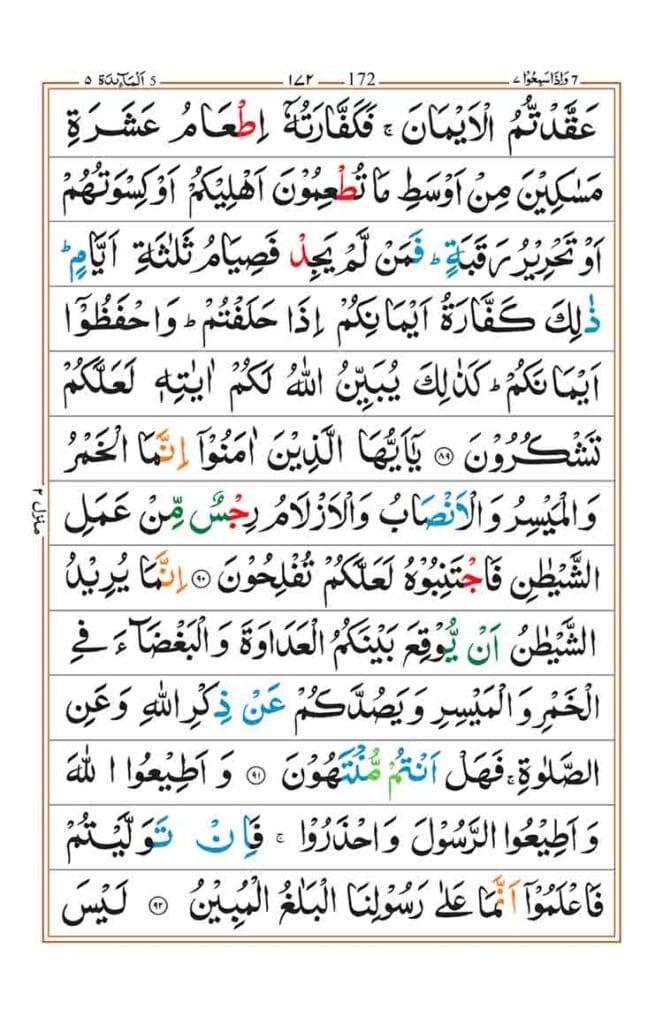 وَاِذَا سَمِعُوْا ٧ 7 172 ١٧٢ 5 اَلْمَآئِدَة ٥
عَقَّدْتُّمُ الْاَيْمَانَ ۚ فَكَفَّارَتُهٗۤ اِطْعَامُ عَشَرَةِ
مَسٰكِيْنَ مِنْ اَوْسَطِ مَا تُطْعِمُوْنَ اَهْلِيْكُمْ اَوْ كِسْوَتُهُمْ
اَوْ تَحْرِيْرُ رَقَبَةٍ ؕ فَمَنْ لَّمْ يَجِدْ فَصِيَامُ ثَلٰثَةِ اَيَّامٍ ؕ
ذٰلِكَ كَفَّارَةُ اَيْمَانِكُمْ اِذَا حَلَفْتُمْ ؕ وَاحْفَظُوْۤا
اَيْمَانَكُمْ ؕ كَذٰلِكَ يُبَيِّنُ اللّٰهُ لَكُمْ اٰيٰتِهٖ لَعَلَّكُمْ
تَشْكُرُوْنَ ۝٨٩ يٰۤاَيُّهَا الَّذِيْنَ اٰمَنُوْۤا اِنَّمَا الْخَمْرُ
وَالْمَيْسِرُ وَالْاَنْصَابُ وَالْاَزْلَامُ رِجْسٌ مِّنْ عَمَلِ
الشَّيْطٰنِ فَاجْتَنِبُوْهُ لَعَلَّكُمْ تُفْلِحُوْنَ ۝٩٠ اِنَّمَا يُرِيْدُ
الشَّيْطٰنُ اَنْ يُّوْقِعَ بَيْنَكُمُ الْعَدَاوَةَ وَالْبَغْضَآءَ فِي
الْخَمْرِ وَالْمَيْسِرِ وَيَصُدَّكُمْ عَنْ ذِكْرِ اللّٰهِ وَعَنِ
الصَّلٰوةِ ۚ فَهَلْ اَنْتُمْ مُّنْتَهُوْنَ ۝٩١ وَاَطِيْعُوا اللّٰهَ
وَاَطِيْعُوا الرَّسُوْلَ وَاحْذَرُوْا ۚ فَاِنْ تَوَلَّيْتُمْ
فَاعْلَمُوْۤا اَنَّمَا عَلٰى رَسُوْلِنَا الْبَلٰغُ الْمُبِيْنُ ۝٩٢ لَيْسَ
منزل ٢